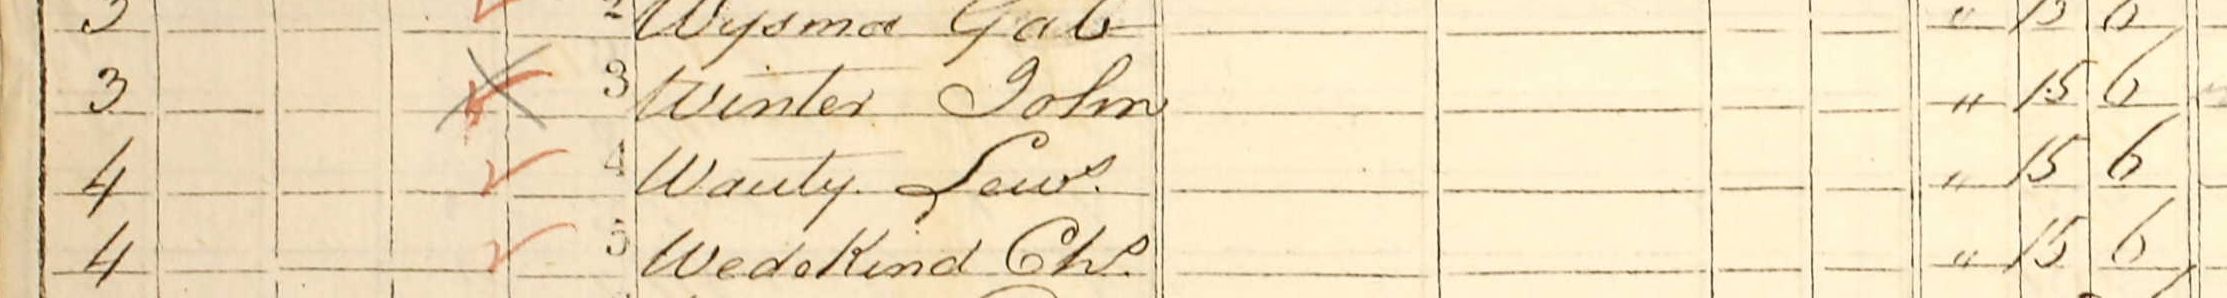 3 2 Wysma Gab " 15 6
3 3 Winter John " 15 6
4 4 Wauty Lewˢ. " 15 6
4 5 Wedekind Chˢ. " 15 6